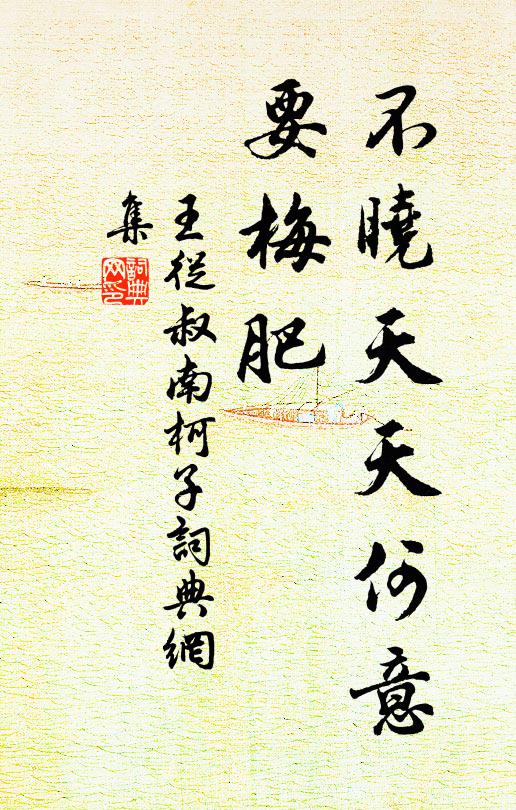 不曉天天何意
要梅肥
王從叔南柯子詞典網
集
詞典
网印